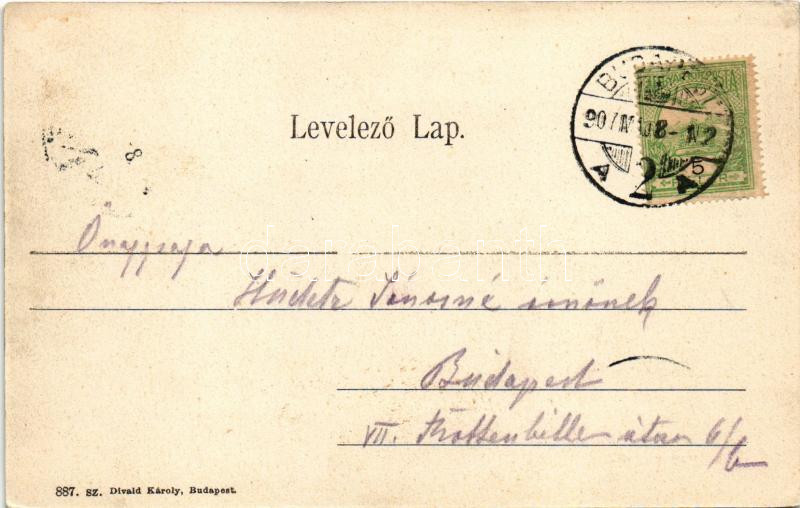 Levelező Lap.
BUDAPEST
907
A 2 A
5
8
Önagysága
Hudetz Jánosné úrnőnek
Budapest
VII. Rottenbiller útca 6/b
887. sz. Divald Károly, Budapest.